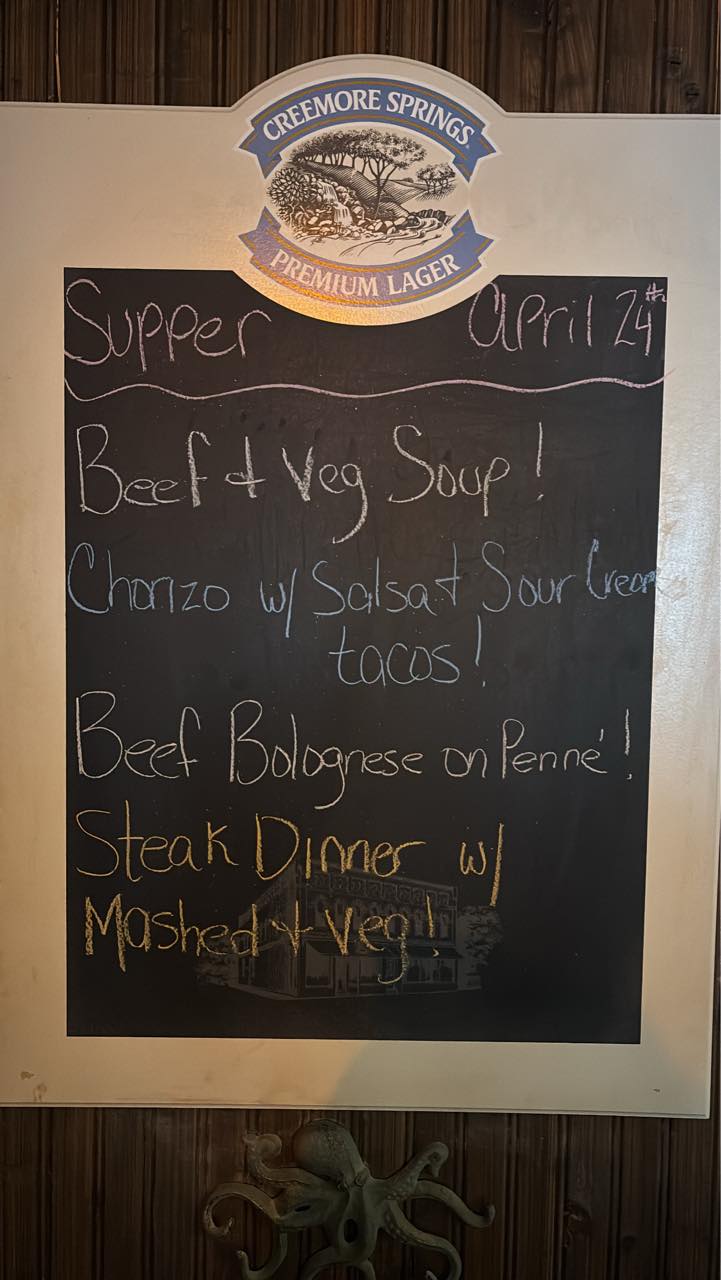 CREEMORE SPRINGS
PREMIUM LAGER
Supper April 24th
Beef & Veg Soup!
Chorizo w/ Salsa & Sour Cream
tacos!
Beef Bolognese on Penné!
Steak Dinner w/
Mashed & Veg!